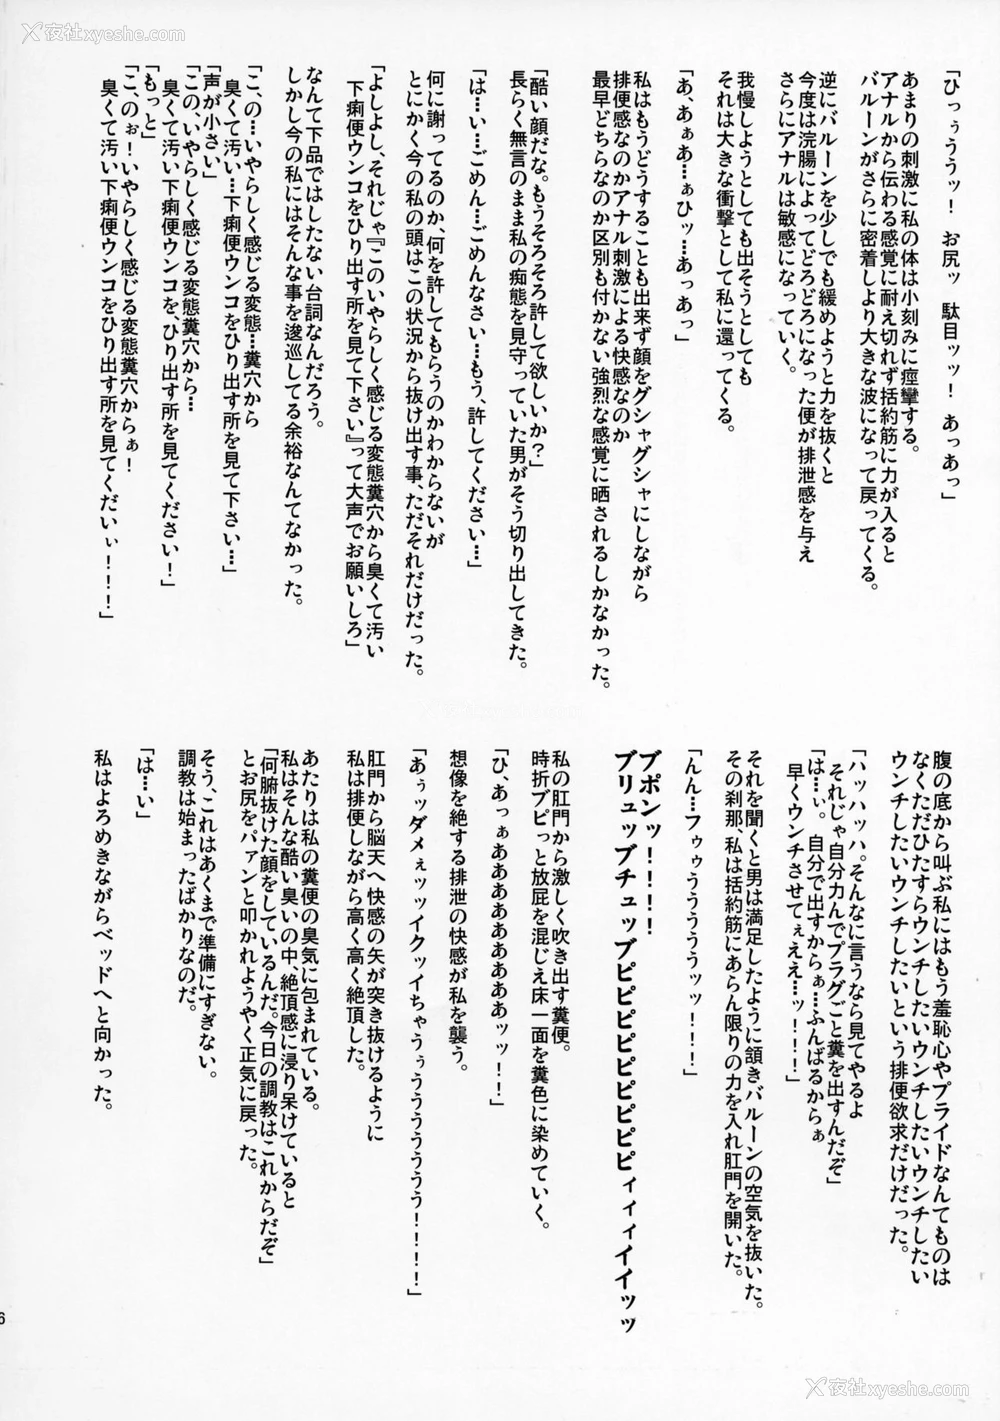 夜社xyeshe.com
「ひっぅううッ！　お尻ッ　駄目ッッ！　あっあっ」
あまりの刺激に私の体は小刻みに痙攣する。
アナルから伝わる感覚に耐え切れず括約筋に力が入ると
バルーンがさらに密着しより大きな波になって戻ってくる。
逆にバルーンを少しでも緩めようと力を抜くと
今度は浣腸によってどろどろになった便が排泄感を与え
さらにアナルは敏感になっていく。
我慢しようとしても出そうとしても
それは大きな衝撃として私に還ってくる。
「あ、あぁあ…ぁひッ…あっあっ」
私はもうどうすることも出来ず顔をグシャグシャにしながら
排便感なのかアナル刺激による快感なのか
最早どちらなのか区別も付かない強烈な感覚に晒されるしかなかった。
「酷い顔だな。もうそろそろ許して欲しいか？」
長らく無言のまま私の痴態を見守っていた男がそう切り出してきた。
「は…い…ごめん…ごめんなさい…もう、許してください…」
何に謝ってるのか、何を許してもらうのかわからないが
とにかく今の私の頭はこの状況から抜け出す事、ただそれだけだった。
「よしよし、それじゃ『このいやらしく感じる変態糞穴から臭くて汚い
下痢便ウンコをひり出す所を見て下さい』って大声でお願いしろ」
なんて下品ではしたない台詞なんだろう。
しかし今の私にはそんな事を逡巡してる余裕なんてなかった。
「こ、の…いやらしく感じる変態…糞穴から
臭くて汚い…下痢便ウンコをひり出す所を見て下さい…」
「声が小さい」
「この、いやらしく感じる変態糞穴から…
臭くて汚い下痢便ウンコを、ひり出す所を見てください！」
「もっと」
「こ、のぉ！いやらしく感じる変態糞穴からぁ！
臭くて汚い下痢便ウンコをひり出す所を見てくだいぃ！！！」
腹の底から叫ぶ私にはもう羞恥心やプライドなんてものは
なくただひたすらウンチしたいウンチしたいウンチしたい
ウンチしたいウンチしたいという排便欲求だけだった。
「ハッハッハ。そんなに言うなら見てやるよ
それじゃ自分力んでプラグごと糞を出すんだぞ」
「は…ぃ。自分で出すからぁ…ふんばるからぁ
早くウンチさせてぇええ…ッ！！！」
それを聞くと男は満足したように頷きバルーンの空気を抜いた。
その刹那、私は括約筋にあらん限りの力を入れ肛門を開いた。
「んん…フゥゥうううううッッ！！！」
ブポンッ！！！！
ブリュッブチュッブピピピピピピピピィィィイイッッ
私の肛門から激しく吹き出す糞便。
時折ブピっと放屁を混じえ床一面を糞色に染めていく。
「ひ、あっぁああああああああッッ！！」
想像を絶する排泄の快感が私を襲う。
「あぅッダメぇッッイクッイちゃうぅううううううう！！！！」
肛門から脳天へ快感の矢が突き抜けるように
私は排便しながら高く高く絶頂した。
あたりは私の糞便の臭気に包まれている。
私はそんな酷い臭いの中、絶頂感に浸り呆けていると
「何腑抜けた顔をしているんだ。今日の調教はこれからだぞ」
とお尻をパァンと叩かれようやく正気に戻った。
そう、これはあくまで準備にすぎない。
調教は始まったばかりなのだ。
「は…い」
私はよろめきながらベッドへと向かった。
6
夜社xyeshe.com